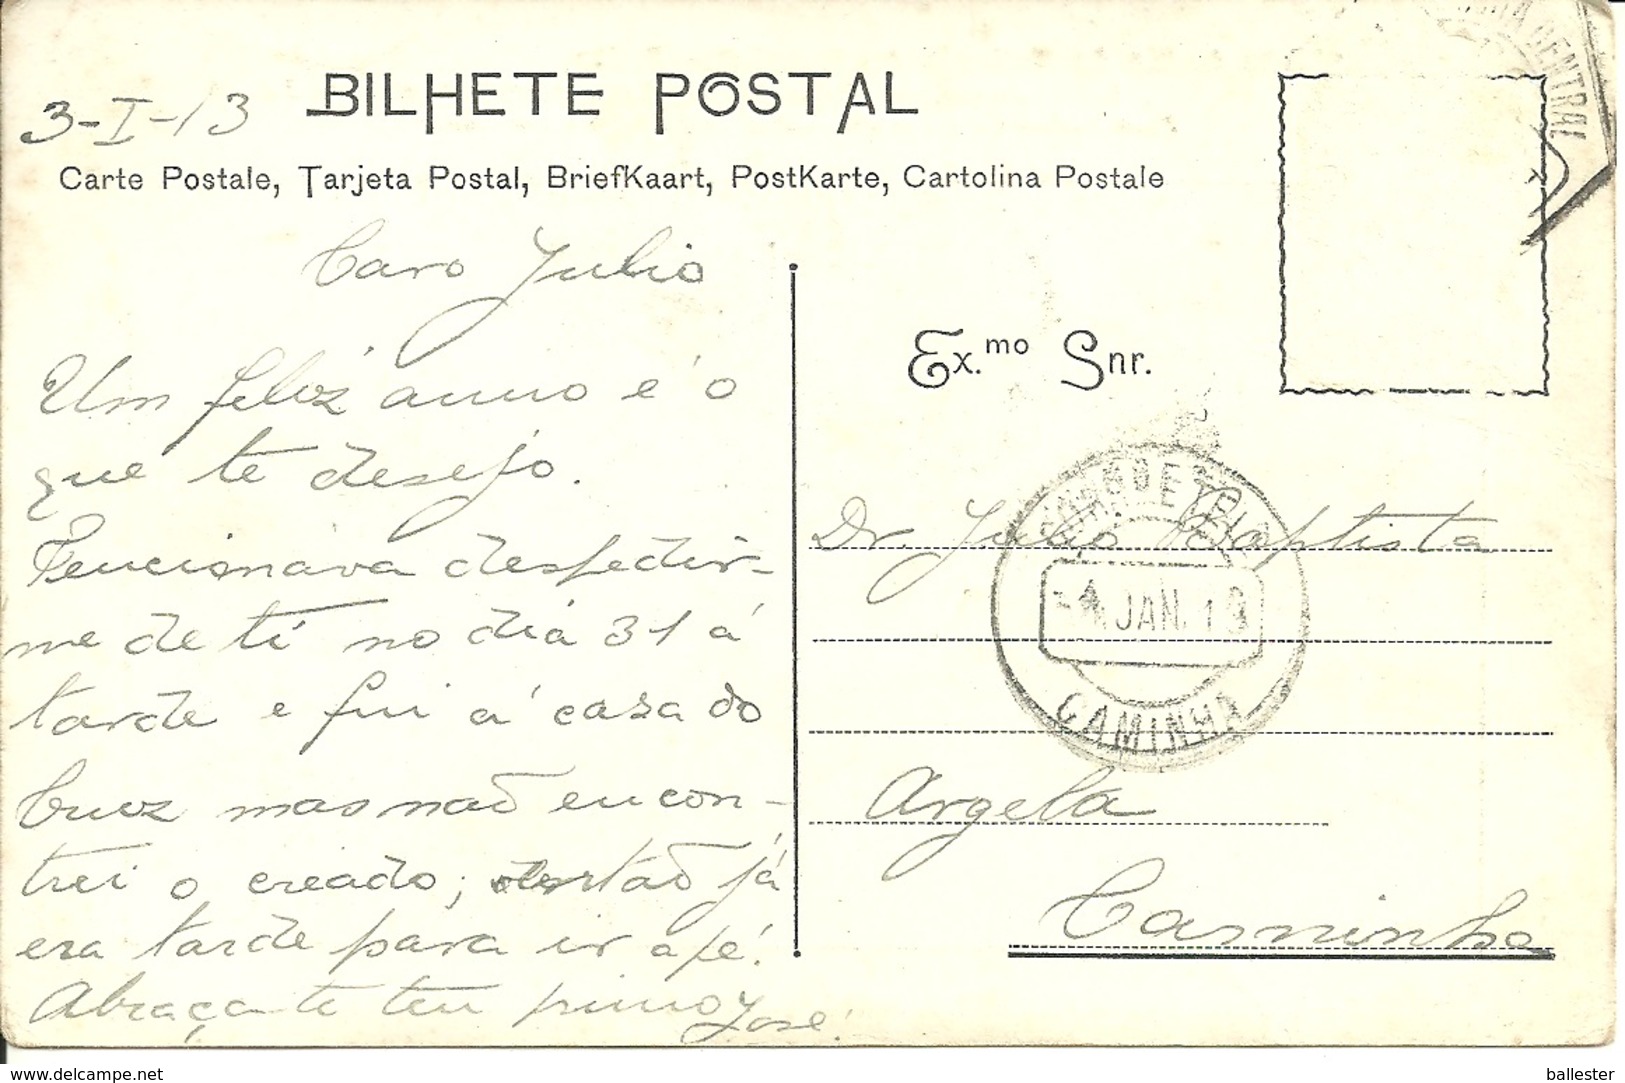 3-I-13
BILHETE POSTAL
Carte Postale, Tarjeta Postal, BriefKaart, PostKarte, Cartolina Postale
Caro Julio
Um feliz anno é o
que te desejo.
Tencionava despedir-
me de ti no dia 31 á
tarde e fui á casa do
Cruz mas não encon-
trei o creado; então já
era tarde para ir a pé.
Abraça-te teu primo José
Ex.mo Snr.
Dr. Julio Baptista
Argela
Caminha
CENTRAL
4 JAN. 13
CAMINHA
www.delcampe.net
ballester